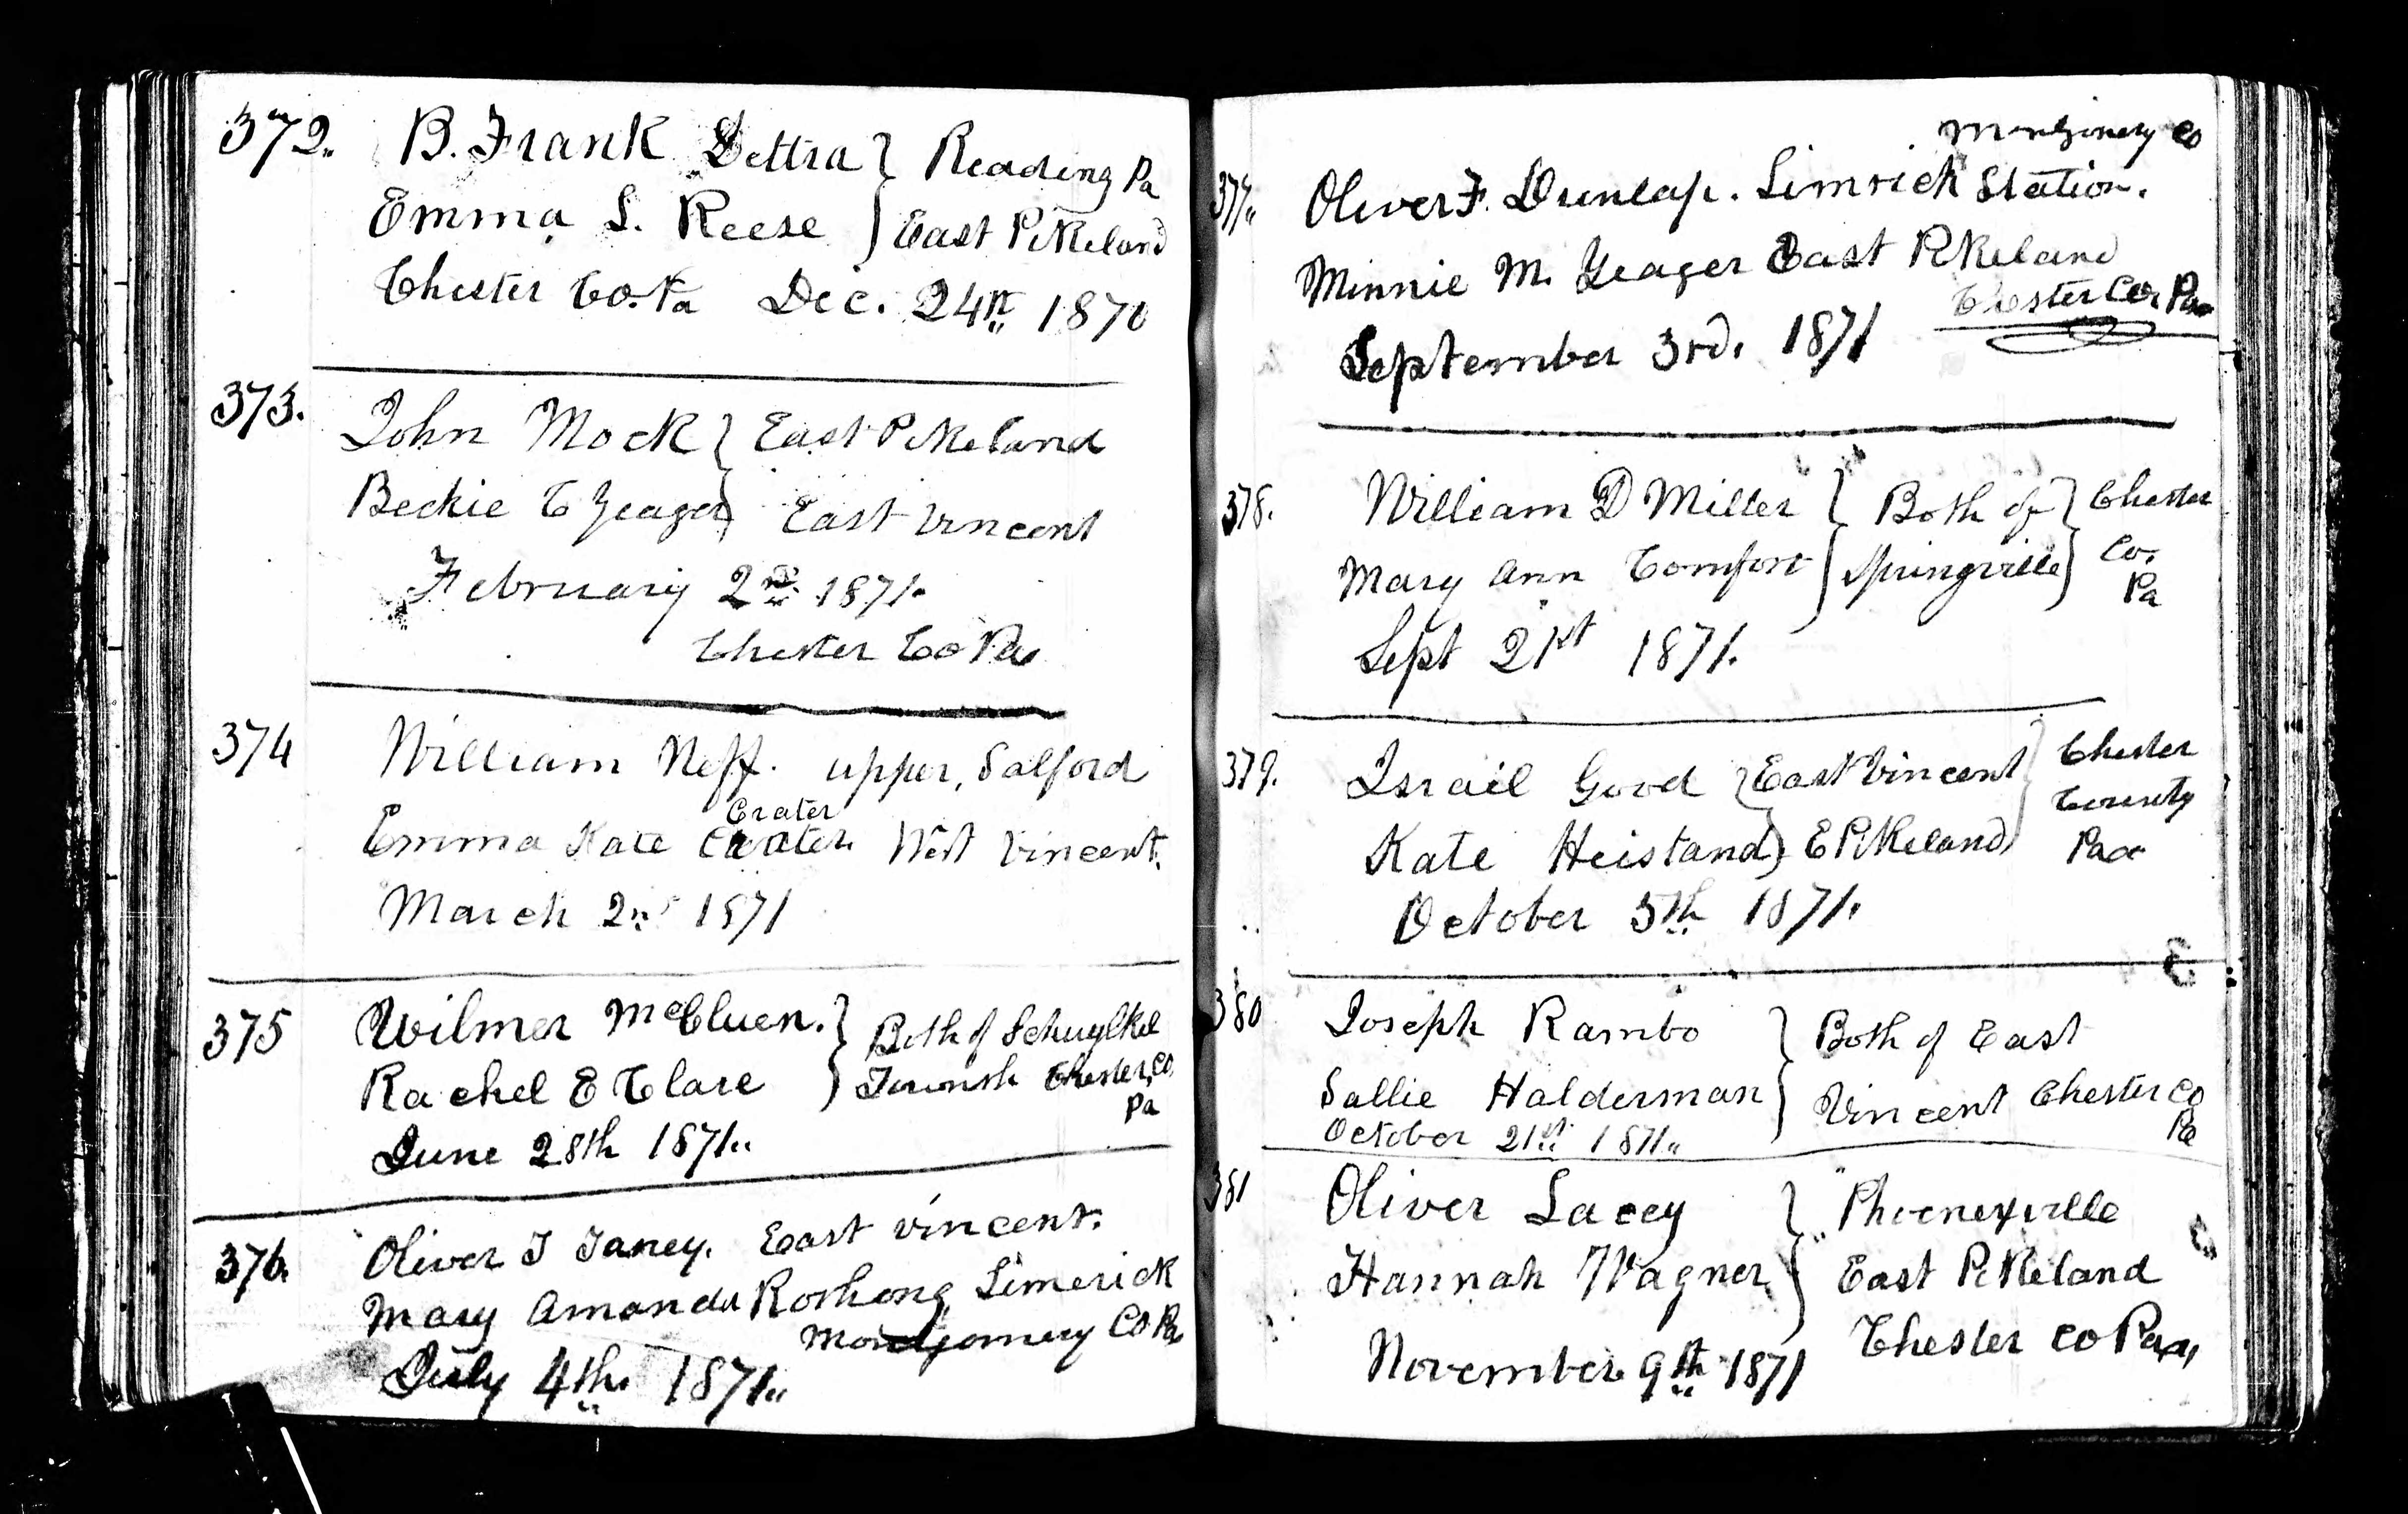 372. B. Frank Dettra } Reading Pa
Emma S. Reese } East Pikeland
Chester Co. Pa Dec. 24th 1870
373. John Mock } East Pikeland
Beckie C Yeager } East Vincent
February 2nd 1871.
Chester Co Pa
374 William Neff. upper, Salford
Crater
Emma Kate Crater West Vincent.
March 2nd 1871
375 Wilmer McCluen. } Both of Schuylkil
Rachel E Clare } Townsh Chester, Co,
Pa
June 28th 1871.
376. Oliver T Taney. East Vincent.
Mary Amanda Roshong Limerick
Montgomery Co Pa
July 4th. 1871.
Montgomery Co
377. Oliver F. Dunlap. Limrick Station.
Minnie M. Yeager East Pikeland
Chester Co, Pa
September 3rd. 1871
378. William D Miller } Both of } Chester
Mary Ann Comfort } Springville } Co.
Pa
Sept 21st 1871.
379. Israil Good } East Vincent } Chester
County
Kate Heistand } E Pikeland } Pa
October 5th 1871.
380 Joseph Rambo } Both of East
Sallie Halderman } Vincent Chester Co
Pa
October 21st 1871.
381 Oliver Lacey } Phoenexville
Hannah Wagner } East Pikeland
Chester Co Pa,
November 9th 1871